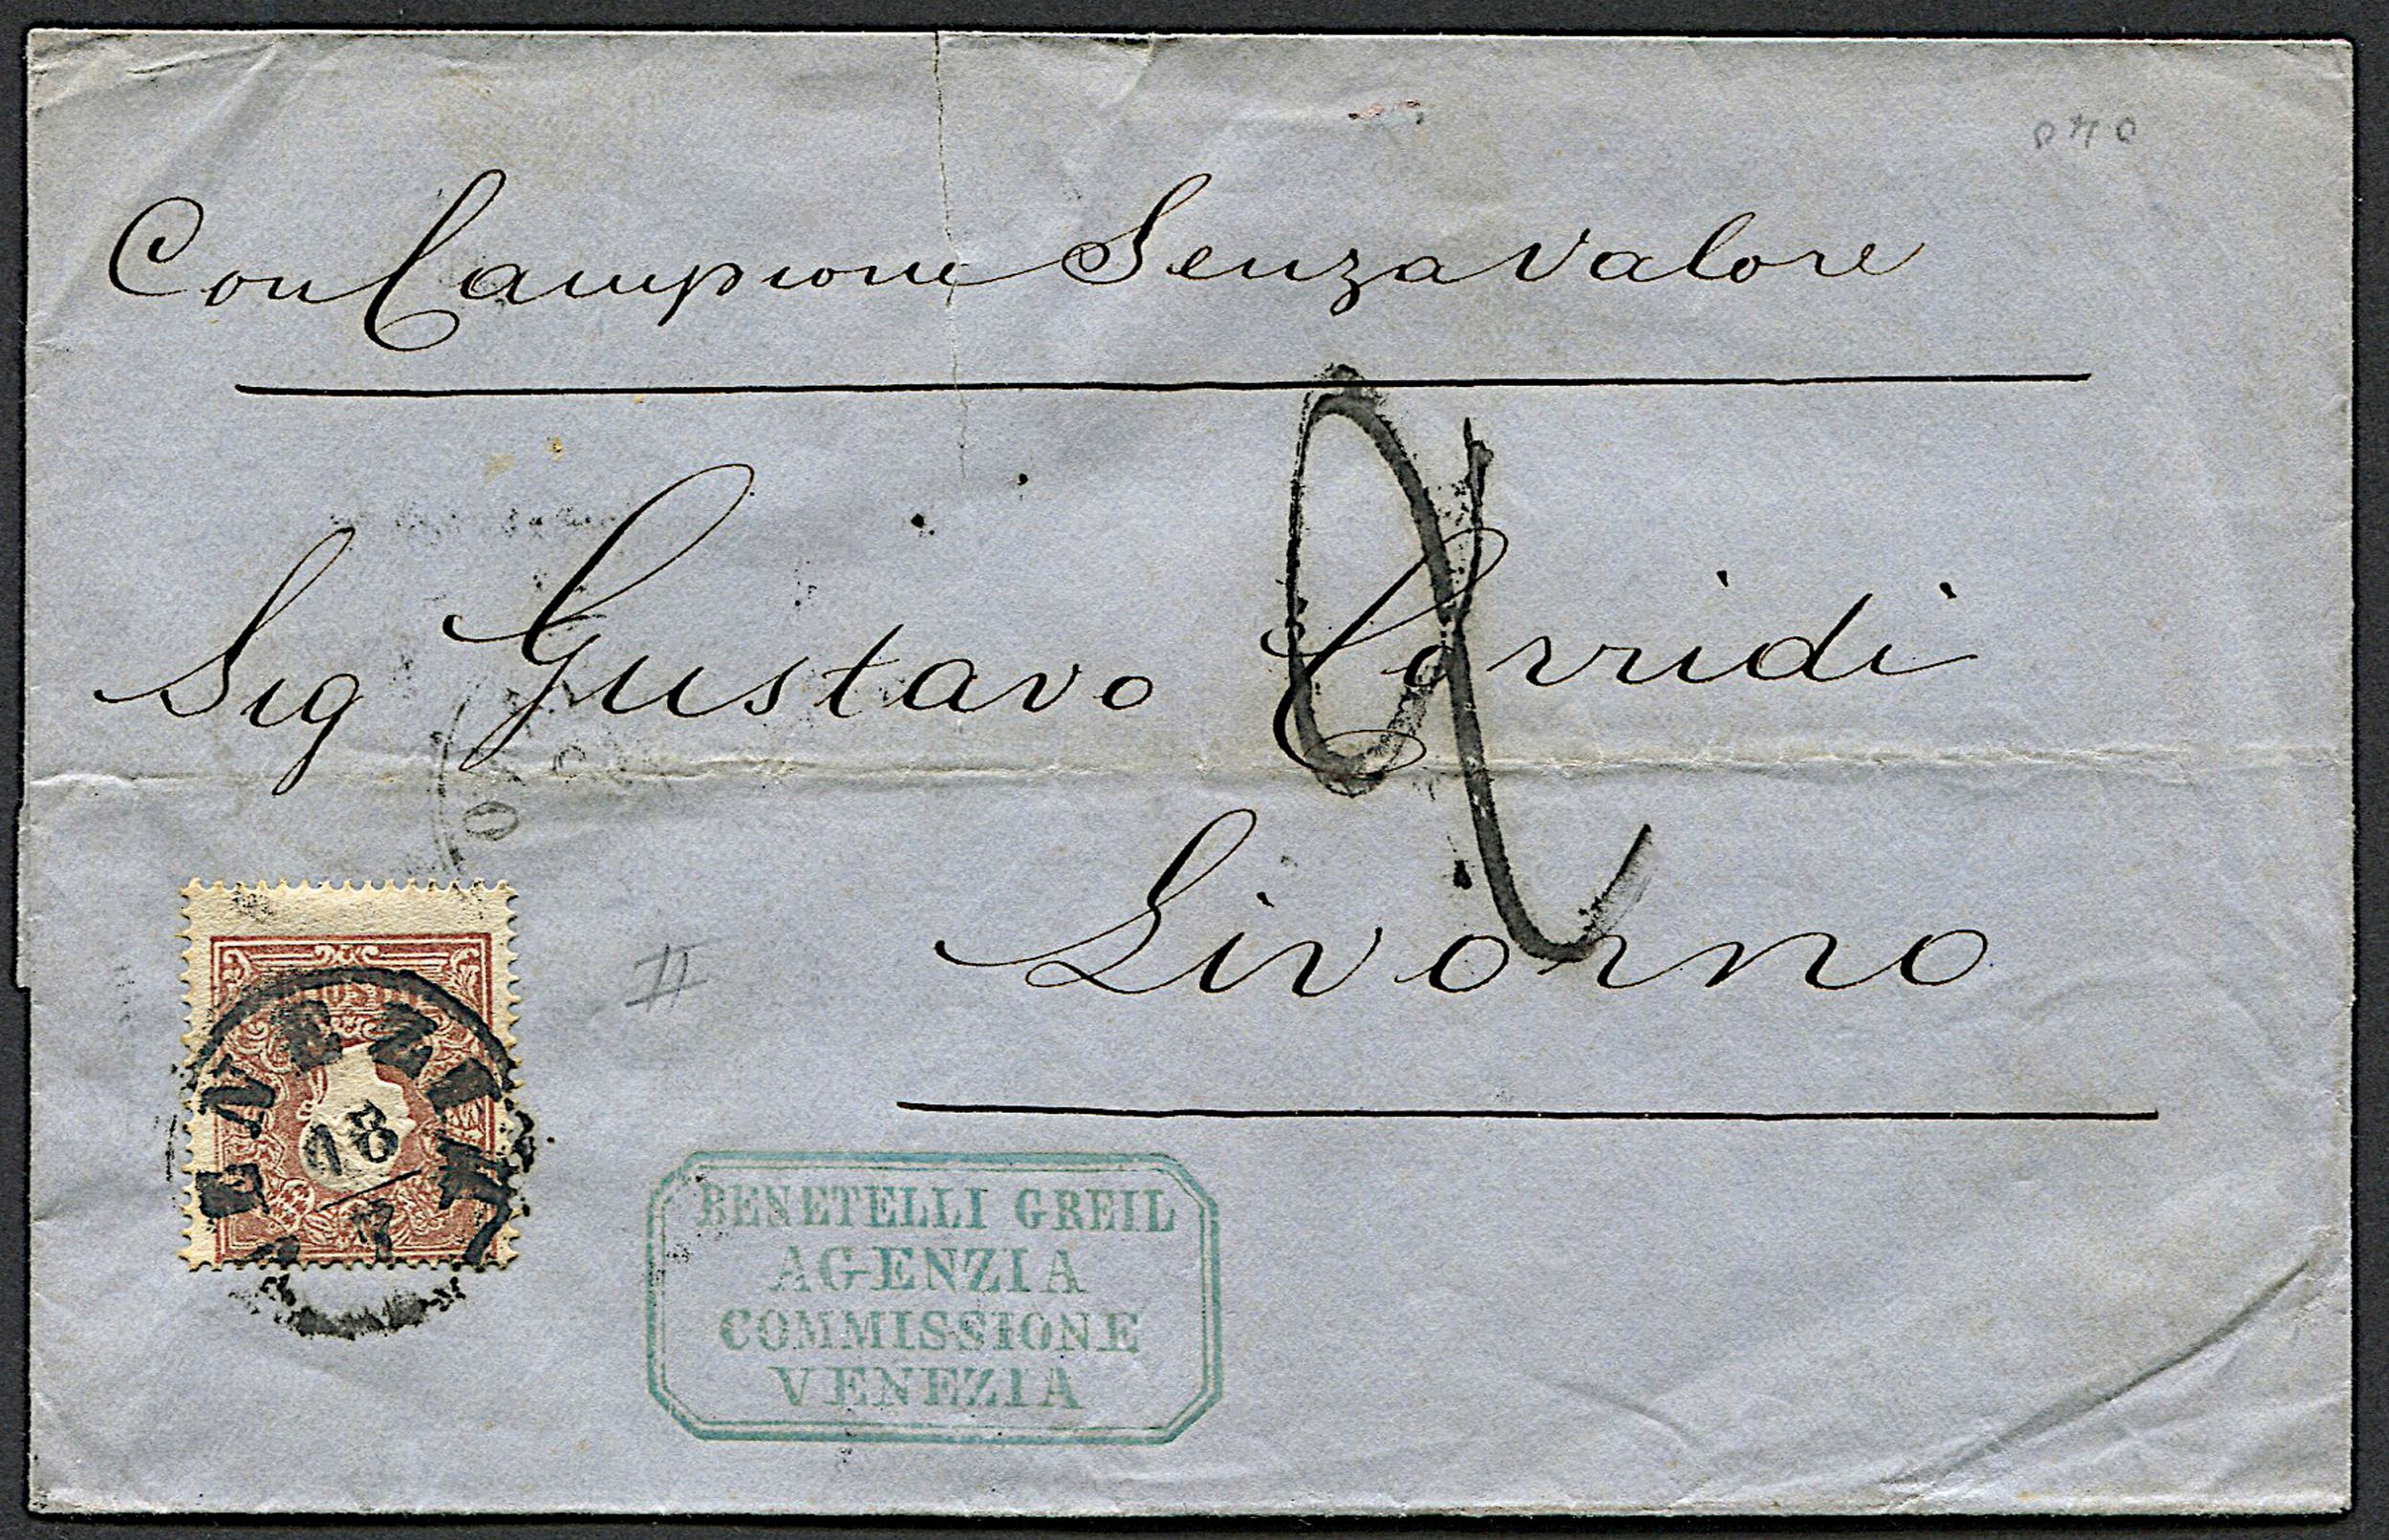 Con Campione Senza Valore
Sig Gustavo Corridi
Livorno
2
II
VENEZIA
18
7
BENETELLI GREIL
AGENZIA
COMMISSIONE
VENEZIA